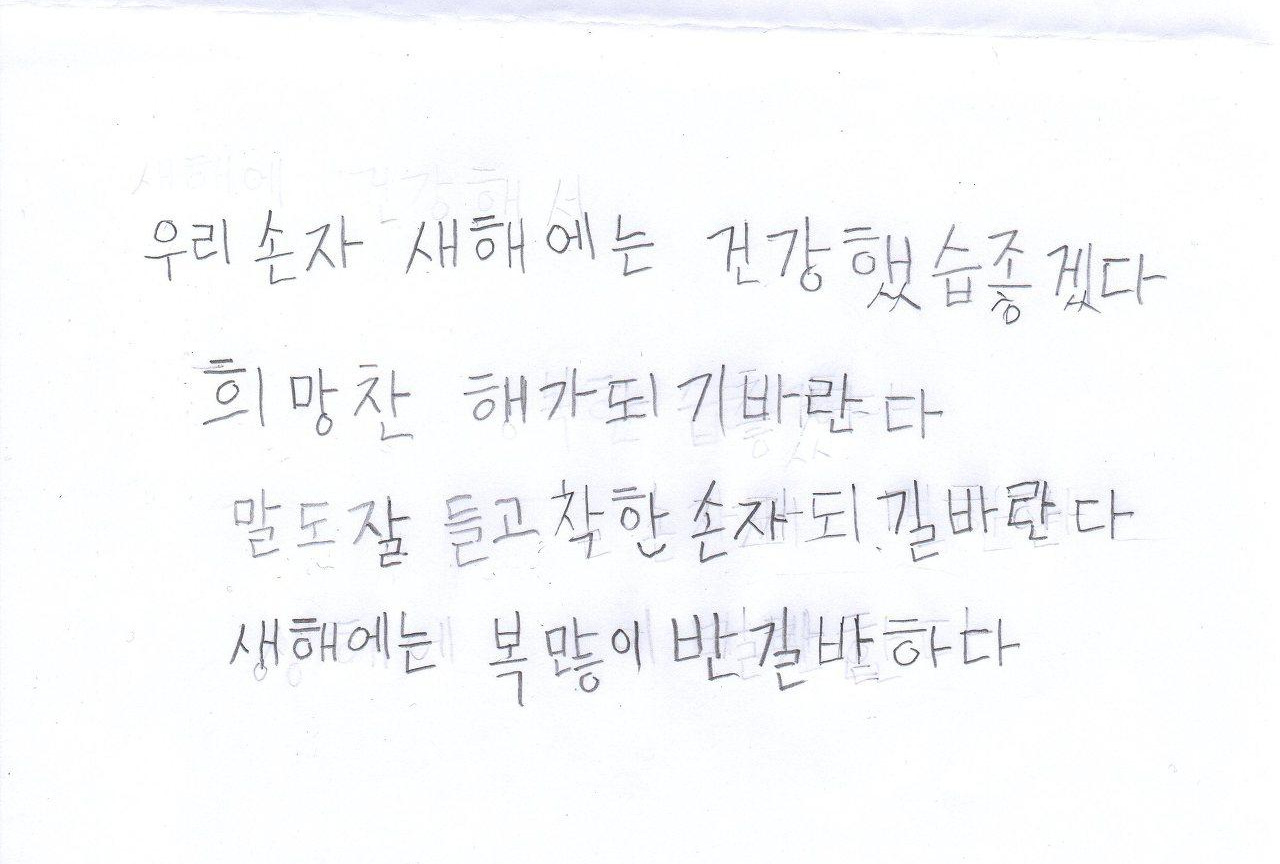 우리손자 새해에는 건강했습좋겠다
희망찬 행가되기바란다
말도잘 들고착한손자되길바란다
생해에는 복많이 반길반하다